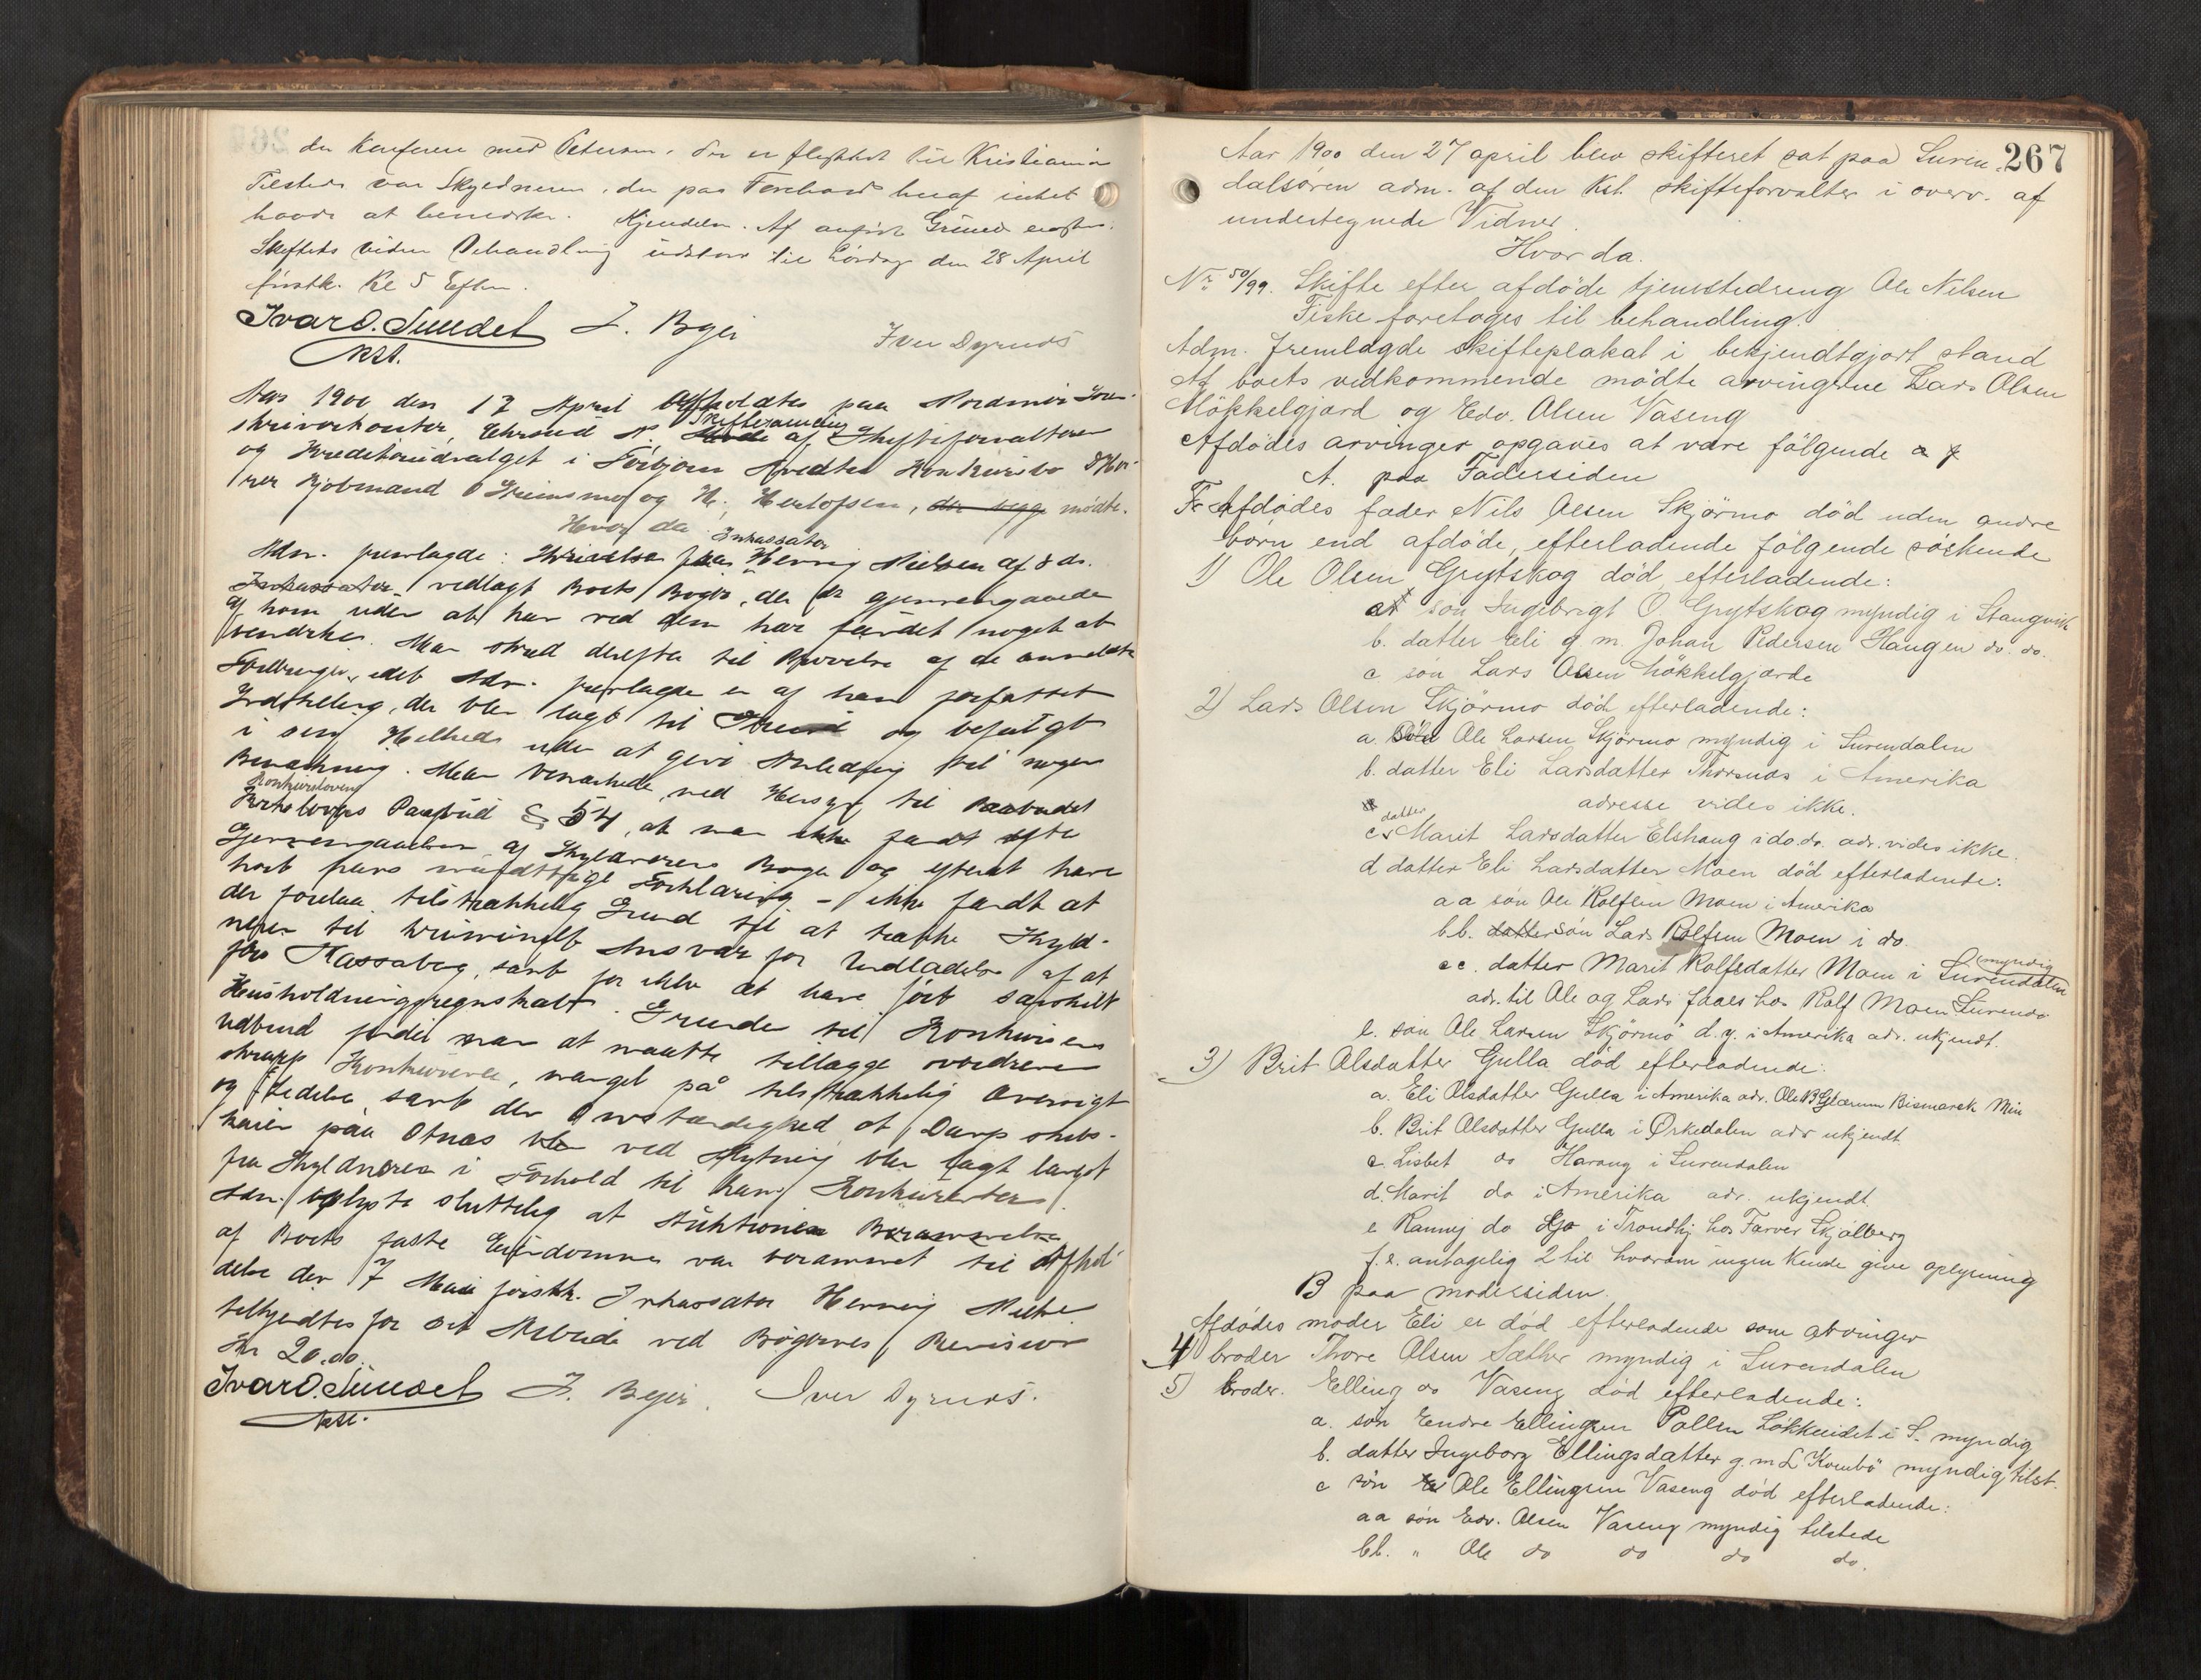 der Konferere med Peterson, der er flyttet til Kristiania
Tilstede var Skyldneren, der paa Forehold heraf intet
havde at bemærke. Kjendelse. Af anførte Grund
Skiftets videre Behandling udstaar til Lørdag den 28 April
førstk. Kl 5 Eftm.
Ivar O. Sundet J. Byer Iver Dyrnes
kst.
Aar 1900 den 17 April afholdtes paa Nordmør Soren-
skriverkontor, Skiftesamling af Skifteforvalteren
og Kreditorudvalget i Torbjørn Konkursbo
Kjøbmand Grimsmo og H. Herlofsen, mødte.
Hvor da
Adm. fremlagde: Skrivelse fra Inkassator Henrig Nielsen af 8 ds.
Inkassator vedlagt Boets Bøger, der er gjennemgaaede
af ham uden at han ved dem har fundet noget at
bemærke. Man skred derefter til Prøvelse af de anmeldte
Fordringer, idet Adm. fremlagde en af ham forfattet
Indstilling, der blev lagt til Grund og befulgt
i sin Helhed uden at give Anledning til nogen
Bemærkning. Man bemærkede, ved Hensyn til Paabudet
Konkurslovens
Paabud § 54, at man ikke fandt efter
Gjennemgaaelsen af Skyldnerens Bøger og efterat have
hørt hans mundtlige Forklaring - ikke fandt at
der forelaa tilstrækkelig Grund til at trække Skyld-
neren til kriminelt Ansvar for Undladelse af at
føre Kassabog, samt for ikke at have ført særskilt
Husholdningsregnskab. Grunden til Konkursens
Udbrud fandt man at maatte tillægge overdreven
skarp Konkurrence, mangel på tilstrækkelig Oversigt
og Ledelse samt den Omstændighed at Dampskibs-
kaien paa Otnes blev ved Flytning blev lagt langt
fra Skyldneren i Forhold til hans Konkurrenter.
Adm. oplyste sluttelig at Auktionen
af Boets faste Eiendomme var berammet til Afhol-
delse den 7 Mai førstk. Inkassator Henrig Nielsen
tilkjendtes for sit Arbeide ved Bøgernes Revision
Kr 20.00.
Ivar O. Sundet J. Byer. Iver Dyrnes.
kst.
267
Aar 1900 den 27 april blev skifteret sat paa Suren-
dalsøren adm. af den kst. skifteforvalter i overv. af
undertegnede Vidner.
Hvor da.
Nr 50/99. Skifte efter afdøde tjenestedreng Ole Nilsen
Fiske foretoges til behandling.
Adm. fremlagde skifteplakat i bekjendtgjort stand
Af boets vedkommende mødte arvingerne Lars Olsen
Møkkelgjard og Edv. Olsen Vaseng
Afdødes arvinger opgaves at være følgende
A. paa Fædersiden
Afdødes fader Nils Olsen Skjørmo død uden andre
børn end afdøde, efterladende følgende søskende
1) Ole Olsen Grytskog død, efterladende:
a søn Ingebrigt O. Grytskog myndig i Stangvik
b. datter Eli g. m. Johan Pedersen Haugen do. do.
c søn Lars Olsen Møkkelgjærde
2) Lars Olsen Skjørmo død efterladende:
a. Ole Larsen Skjørmo myndig i Surendalen
b. datter Eli Larsdatter Thorsnæs i Amerika
adresse vides ikke.
c. datter Marit Larsdatter Elshaug i do. do. adr. vides ikke.
d datter Eli Larsdatter Moen død efterladende:
aa søn Ole Rolfsen Moen i Amerika
bb. datter søn Lars Rolfsen Moen i do.
cc. datter Marit Rolfsdatter Moen i Surendalen myndig
adr. til Ole og Lars faaes hos Rolf Moen Surendal
e. søn Ole Larsen Skjørmo d. y. i Amerika adr. ukjendt.
3) Brit Olsdatter Gulla død efterladende:
a. Eli Olsdatter Gulla i Amerika adr. Ole B Glærum Bismarck Min
b. Brit Olsdatter Gulla i Ørkedalen adr ukjendt
c. Lisbet do Harang i Surendalen
d. Marit do i Amerika adr. ukjendt
e Rannej do i Trondhj. hos Farver Skjølberg
f. g. antagelig 2 til hvorom ingen kunde give oplysning
B paa modersiden.
Afdødes moder Eli er død efterladende som arvinger
4) broder Thore Olsen Sæther myndig i Surendalen
5) broder. Elling do Vaseng død efterladende:
a. søn Endre Ellingsen Pollen Løkkeidet i S. myndig
b. datter Ingeborg Ellingsdatter g. m. L Kvenbø myndig, tilst.
c søn Ole Ellingsen Vaseng død efterladende:
aa søn Edv. Olsen Vaseng myndig tilstede
bb. " Ole do do do do.